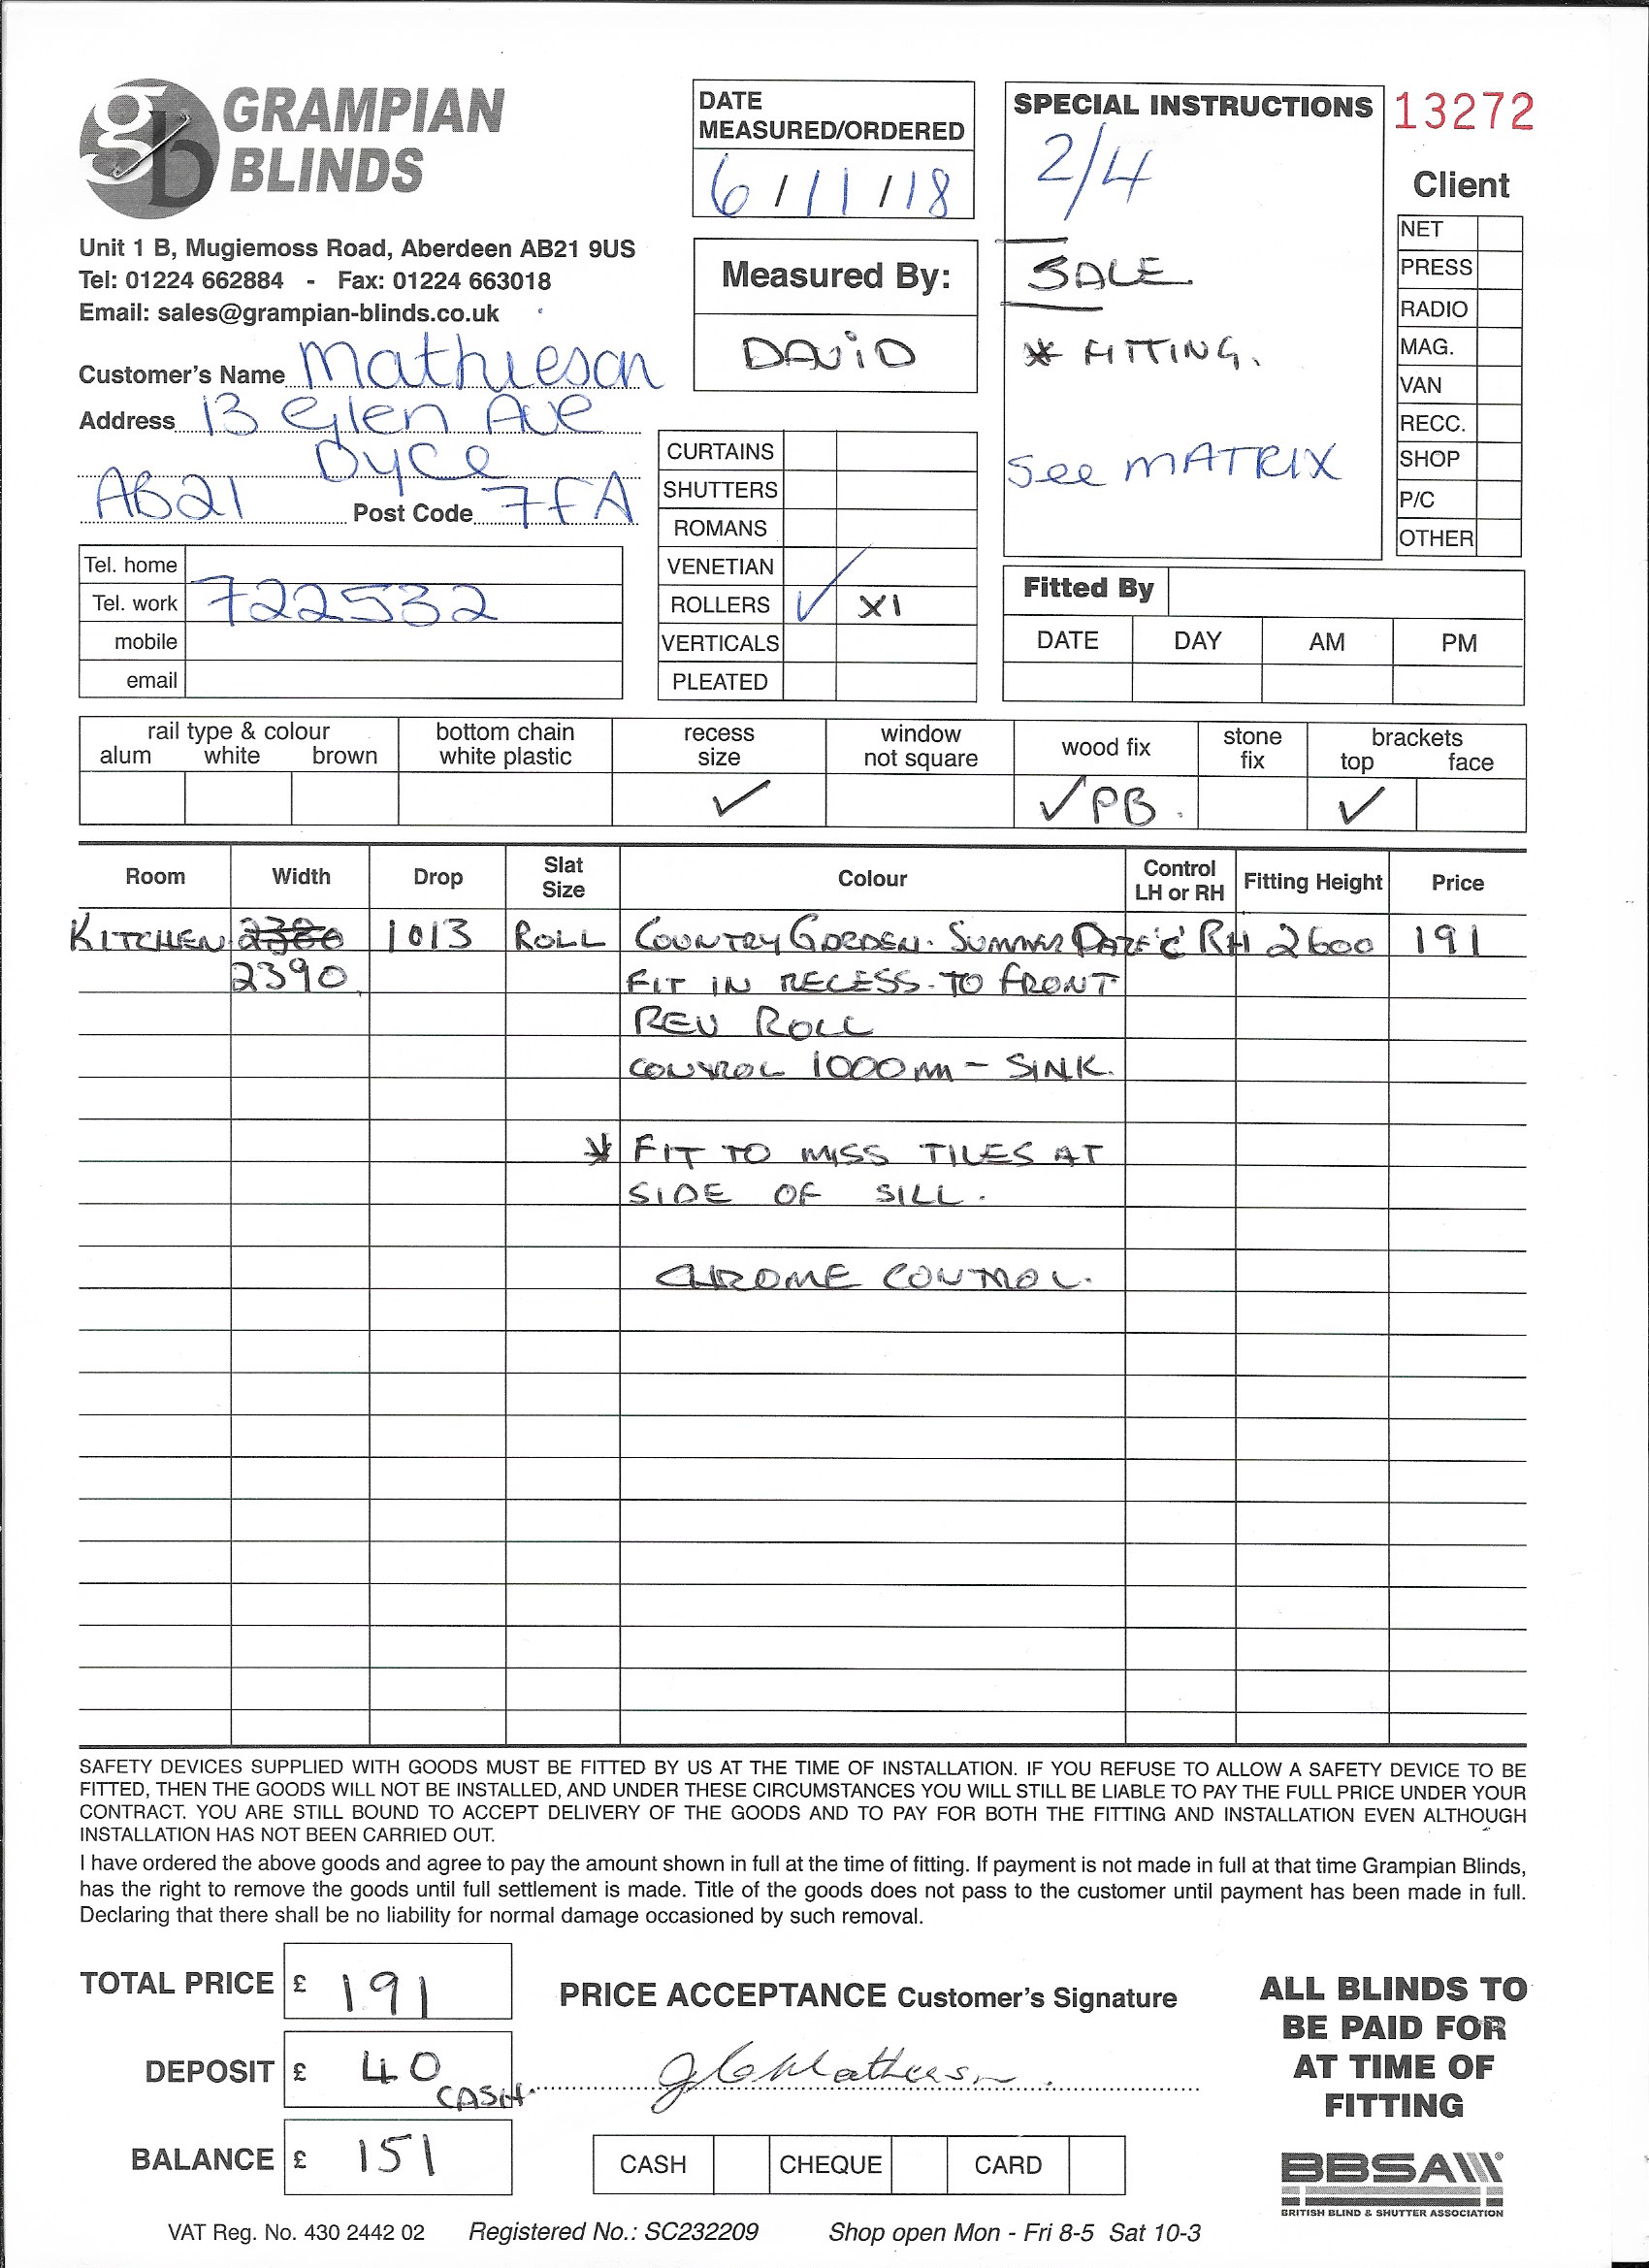 GRAMPIAN
BLINDS
Unit 1 B, Mugiemoss Road, Aberdeen AB21 9US
Tel: 01224 662884 - Fax: 01224 663018
Email: sales@grampian-blinds.co.uk
Customer's Name Mathieson
Address 13 Glen Ave
Dyce
AB21 Post Code 7FA
Tel. home
Tel. work 722532
mobile
email
DATE
MEASURED/ORDERED
6/11/18
Measured By:
DAVID
CURTAINS
SHUTTERS
ROMANS
VENETIAN
ROLLERS ✓ X1
VERTICALS
PLEATED
SPECIAL INSTRUCTIONS
2/4
SALE.
* FITTING.
See MATRIX
13272
Client
NET
PRESS
RADIO
MAG.
VAN
RECC.
SHOP
P/C
OTHER
Fitted By
DATE DAY AM PM
rail type & colour
alum white brown
bottom chain
white plastic
recess
size
✓
window
not square
wood fix
✓ PB.
stone
fix
brackets
top face
✓
Room Width Drop Slat Size Colour Control LH or RH Fitting Height Price
KITCHEN 2380 1013 ROLL COUNTRY GORDEN. SUMMER DAZE 'C' RH 2600 191
2390 FIT IN RECESS - TO FRONT
REV ROLL
CONTROL 1000 m - SINK.
* FIT TO MISS TILES AT
SIDE OF SILL.
CHROME CONTROL.
SAFETY DEVICES SUPPLIED WITH GOODS MUST BE FITTED BY US AT THE TIME OF INSTALLATION. IF YOU REFUSE TO ALLOW A SAFETY DEVICE TO BE
FITTED, THEN THE GOODS WILL NOT BE INSTALLED, AND UNDER THESE CIRCUMSTANCES YOU WILL STILL BE LIABLE TO PAY THE FULL PRICE UNDER YOUR
CONTRACT. YOU ARE STILL BOUND TO ACCEPT DELIVERY OF THE GOODS AND TO PAY FOR BOTH THE FITTING AND INSTALLATION EVEN ALTHOUGH
INSTALLATION HAS NOT BEEN CARRIED OUT.
I have ordered the above goods and agree to pay the amount shown in full at the time of fitting. If payment is not made in full at that time Grampian Blinds,
has the right to remove the goods until full settlement is made. Title of the goods does not pass to the customer until payment has been made in full.
Declaring that there shall be no liability for normal damage occasioned by such removal.
TOTAL PRICE £ 191
DEPOSIT £ 40
CASH
BALANCE £ 151
PRICE ACCEPTANCE Customer's Signature
CASH CHEQUE CARD
ALL BLINDS TO
BE PAID FOR
AT TIME OF
FITTING
BBSA
BRITISH BLIND & SHUTTER ASSOCIATION
VAT Reg. No. 430 2442 02 Registered No.: SC232209 Shop open Mon - Fri 8-5 Sat 10-3